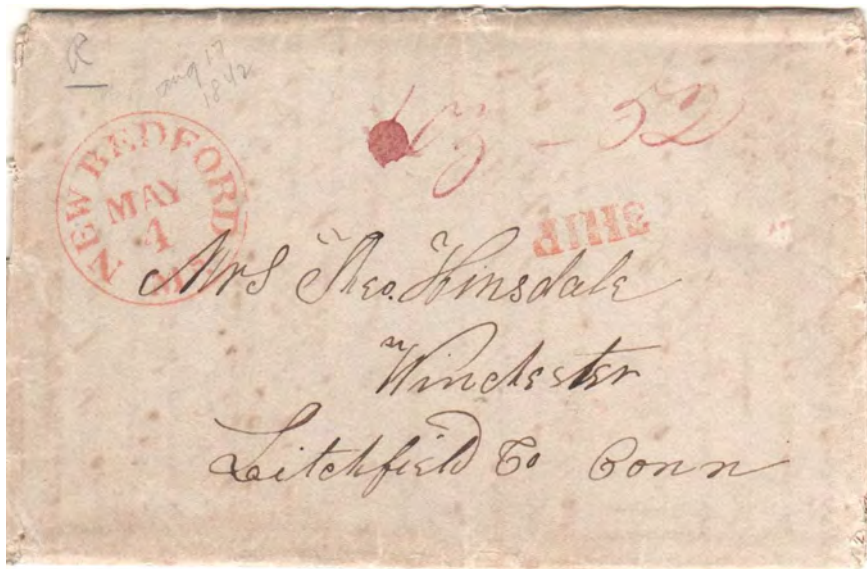 R
aug 17
1842
NEW BEDFORD MS
MAY
4
oz - 52
SHIP
Mrs Theo. Hinsdale
Winchester
Litchfield Co Conn